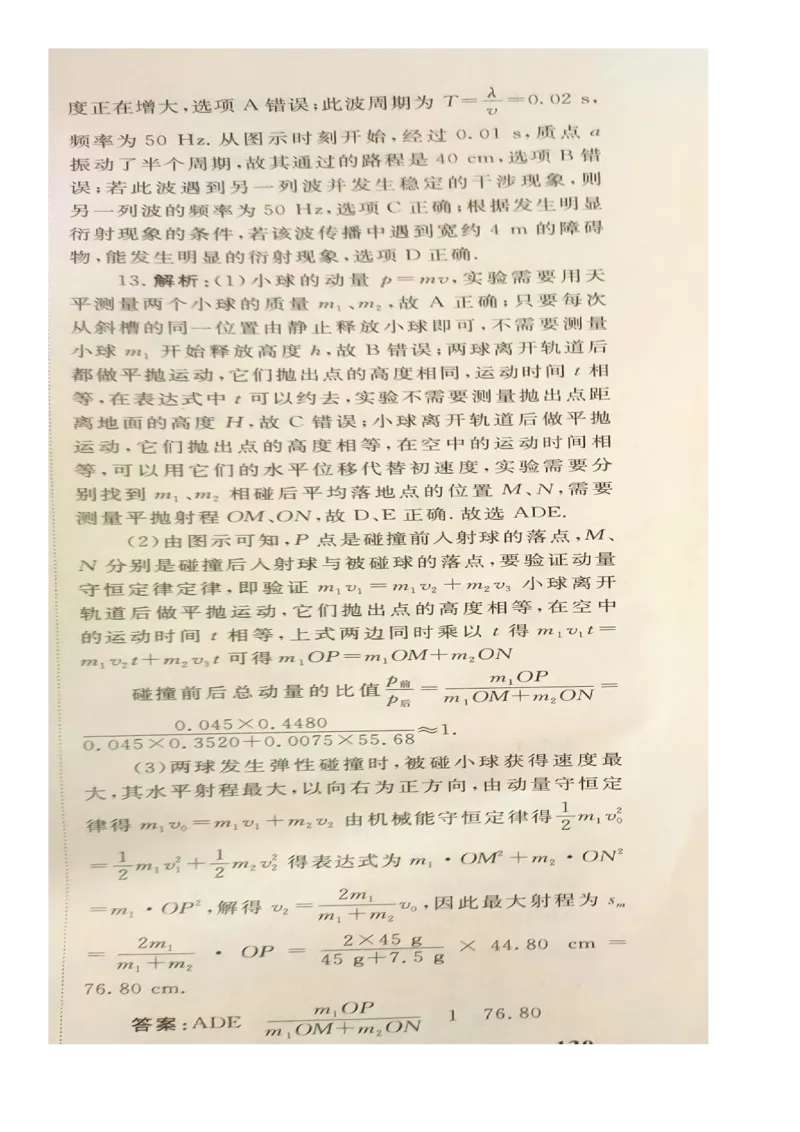 度正在增大,选项 A 错误;此波周期为 T=λ/v=0.02 s,
频率为 50 Hz. 从图示时刻开始,经过 0.01 s,质点 a
振动了半个周期,故其通过的路程是 40 cm,选项 B 错
误;若此波遇到另一列波并发生稳定的干涉现象,则
另一列波的频率为 50 Hz,选项 C 正确;根据发生明显
衍射现象的条件,若该波传播中遇到宽约 4 m 的障碍
物,能发生明显的衍射现象,选项 D 正确.
13. 解析:(1)小球的动量 p=mv,实验需要用天
平测量两个小球的质量 m₁、m₂,故 A 正确;只要每次
从斜槽的同一位置由静止释放小球即可,不需要测量
小球 m₁ 开始释放高度 h,故 B 错误;两球离开轨道后
都做平抛运动,它们抛出点的高度相同,运动时间 t 相
等,在表达式中 t 可以约去,实验不需要测量抛出点距
离地面的高度 H,故 C 错误;小球离开轨道后做平抛
运动,它们抛出点的高度相等,在空中的运动时间相
等,可以用它们的水平位移代替初速度,实验需要分
别找到 m₁、m₂ 相碰后平均落地点的位置 M、N,需要
测量平抛射程 OM、ON,故 D、E 正确. 故选 ADE.
(2)由图示可知,P 点是碰撞前入射球的落点,M、
N 分别是碰撞后入射球与被碰球的落点,要验证动量
守恒定律定律,即验证 m₁v₁=m₁v₂+m₂v₃ 小球离开
轨道后做平抛运动,它们抛出点的高度相等,在空中
的运动时间 t 相等,上式两边同时乘以 t 得 m₁v₁t=
m₁v₂t+m₂v₃t 可得 m₁OP=m₁OM+m₂ON
碰撞前后总动量的比值 p前/p后 = m₁OP/(m₁OM+m₂ON) =
(0.045×0.4480)/(0.045×0.3520+0.0075×55.68)≈1.
(3)两球发生弹性碰撞时,被碰小球获得速度最
大,其水平射程最大,以向右为正方向,由动量守恒定
律得 m₁v₀=m₁v₁+m₂v₂ 由机械能守恒定律得 1/2 m₁v₀²
=1/2 m₁v₁²+1/2 m₂v₂² 得表达式为 m₁·OM²+m₂·ON²
=m₁·OP²,解得 v₂=2m₁/(m₁+m₂) v₀,因此最大射程为 sₘ
= 2m₁/(m₁+m₂) · OP = (2×45 g)/(45 g+7.5 g) × 44.80 cm =
76.80 cm.
答案:ADE m₁OP/(m₁OM+m₂ON) 1 76.80